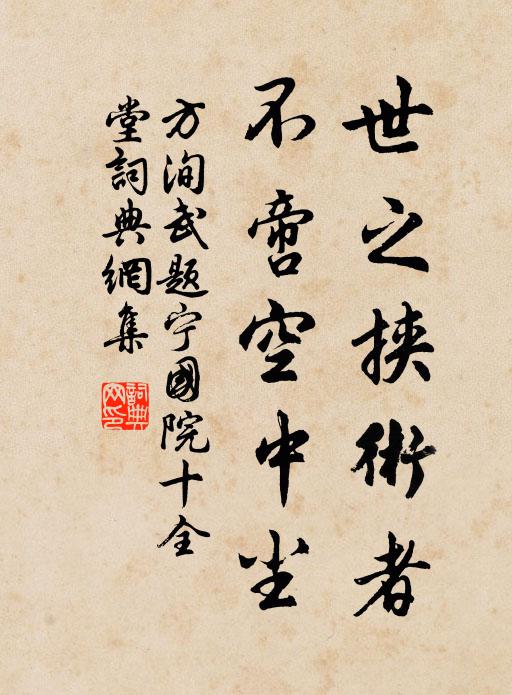 世之挟術者
不啻空中尘
方洵武题宁國院十全
堂詞典網集
詞典
网印